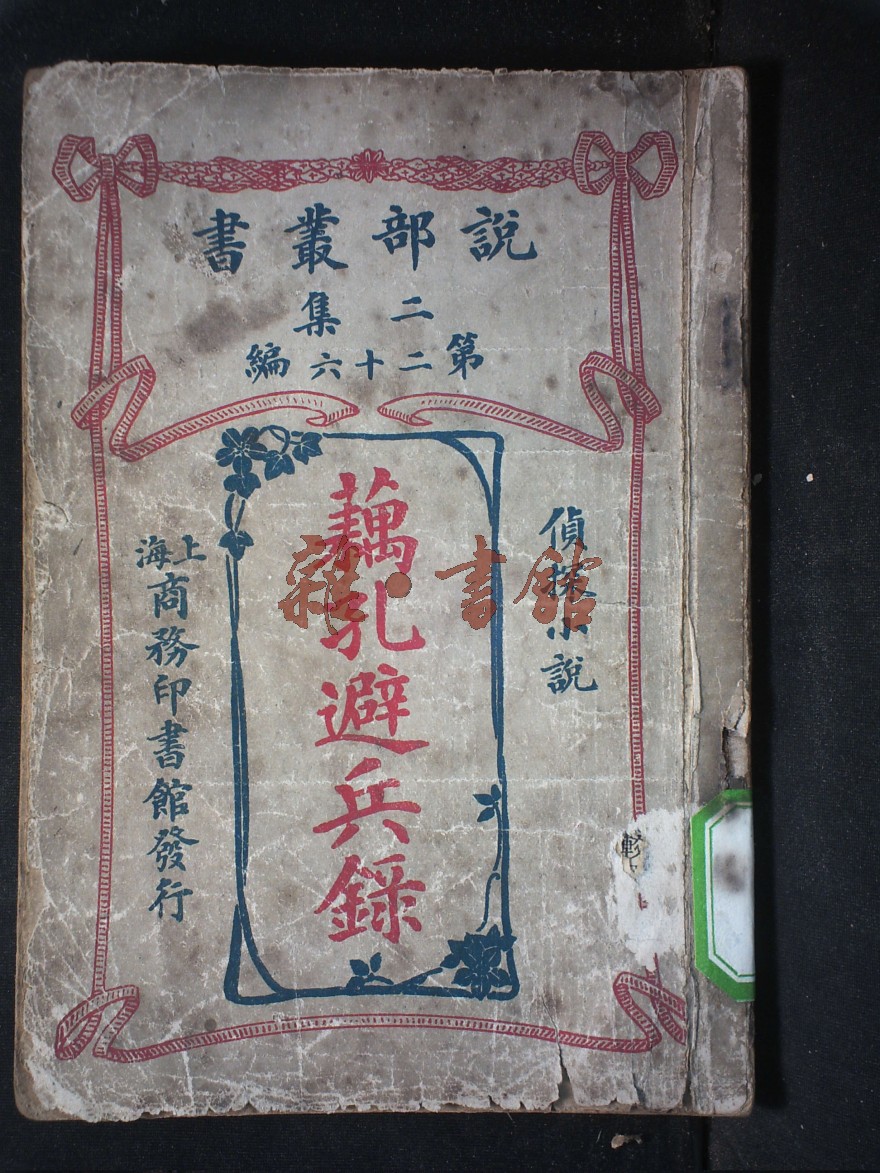 說部叢書
二集
第二十六編
偵探小說
藕孔避兵錄
上海
商務印書館發行
雜·書館